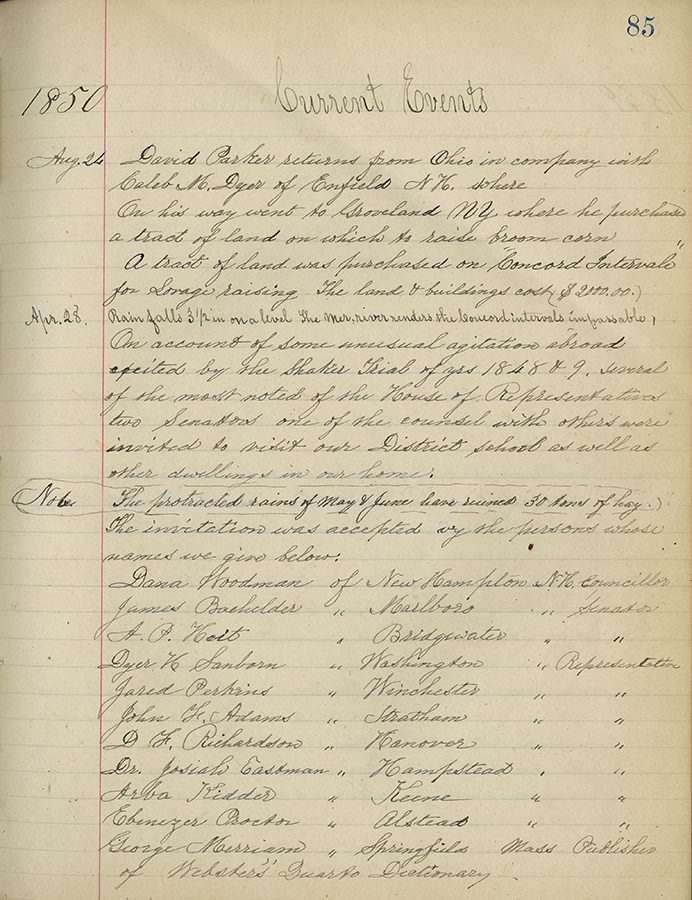 85
1850 Current Events
Aug. 24 David Parker returns from Ohio in company with
Caleb M. Dyer of Enfield N.H. where
On his way went to Groveland N.Y. where he purchased
a tract of land on which to raise broom corn
A tract of land was purchased on "Concord Intervale"
for Lorage raising The land & buildings cost ($2000.00.)
Apr. 28. Rain falls 3 1/2 in on a level The Mer. river renders the Concord intervals impassable,
On account of some unusual agitation abroad
excited by the Shaker Trial of yrs 1848 & 9. several
of the most noted of the House of Representatives
two Senators one of the counsel with others were
invited to visit our District school as well as
other dwellings in our home.
Note The protracted rains of May & June have ruined 30 tons of hay.)
The invitation was accepted by the persons whose
names we give below.
Dana Woodman of New Hampton N.H. Councillor
James Bachelder " Marlboro " Senator
A. P. Hoit " Bridgwater " "
Dyer H Sanborn " Washington " Representative
Jared Perkins " Winchester " "
John F. Adams " Stratham " "
D. F. Richardson " Hanover " "
Dr. Josiah Eastman " Hampstead " "
Arba Kidder " Keene " "
Ebenezer Proctor " Alstead " "
George Merriam " Springfield Mass Publisher
of Webster's Quarto Dictionary.